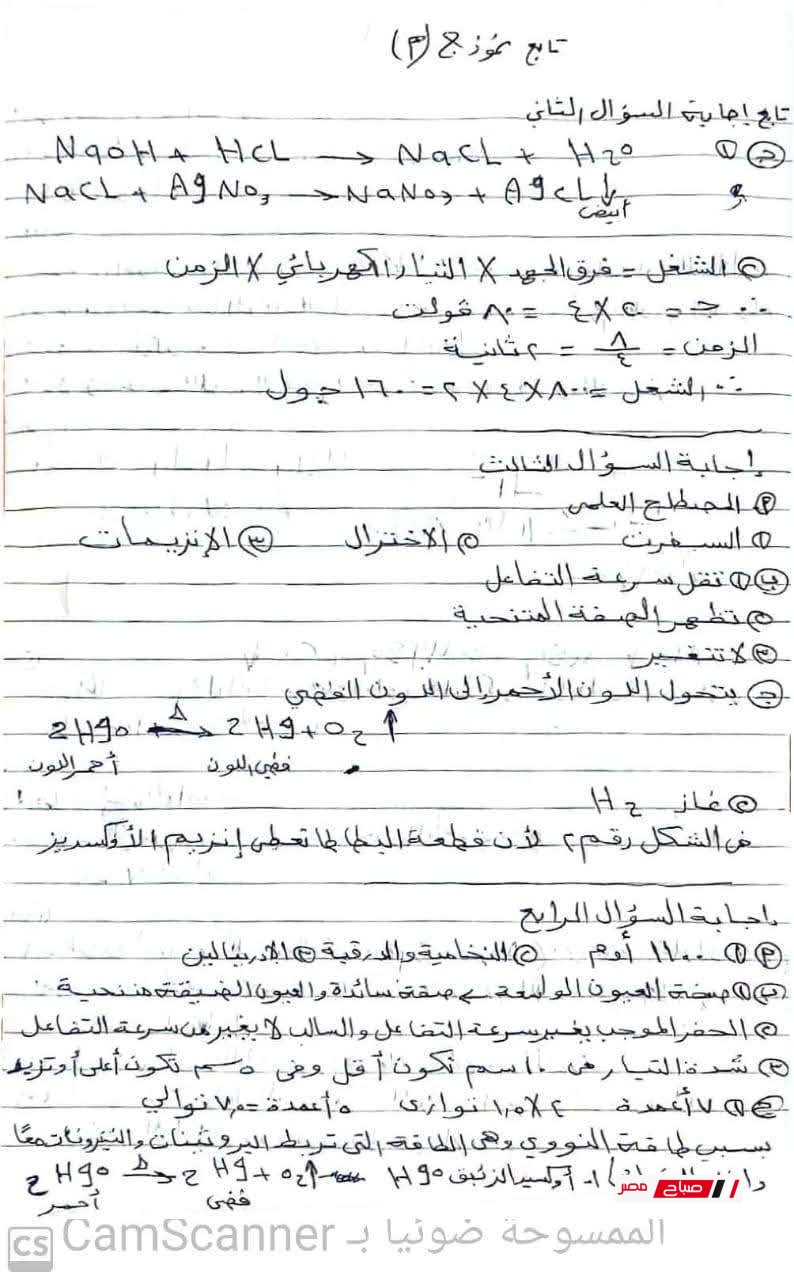 تابع نموذج (٣)
تابع إجابة السؤال الثاني
(ج) ① NaOH + HCL → NaCL + H2O
NaCL + AgNO3 → NaNO3 + AgCL↓
أبيض
② الشغل = فرق الجهد X التيار الكهربائي X الزمن
∴ جـ = ٥٠ X ٤ = ٨٠٠ ڤولت
الزمن = ٨/٤ = ٢ ثانية
∴ الشغل = ٨٠٠ X ٤ X ٢ = ١٦٠٠ جول
إجابة السؤال الثالث
(٢) المصطلح العلمى
① السيفرت ② الاختزال ③ الإنزيمات
(ب) ① تقل سرعة التفاعل
② تظهر الصفة المتنحية
③ لا تتغير
(ج) يتحول اللون الأحمر إلى اللون الفضي
2HgO →Δ 2Hg + O2 ↑
أحمر اللون فضي اللون
② غاز H2
فى الشكل رقم ٢ لأن قطعة البطاطا تعطى إنزيم الأوكسديز
إجابة السؤال الرابع
(٢) ① ١١٠٠ أوم ② النخامية والدرقية ③ الادرينالين
(ب) ① صفة العيون الواسعة صفة سائدة والعيون الضيقة متنحية
② الحفز الموجب يغير سرعة التفاعل والسالب لا يغير من سرعة التفاعل
③ شدة التيار فى ١٠ سم تكون أقل وفى ٥ سم تكون أعلى أو تزيد
(ج) ① ٧ أعمدة ٢ X ١,٥ توازى ٥ أعمدة = ٧,٥ توالي
بسبب طاقة النووي وهى الطاقة التى تربط البروتينات والنيترونات معًا
١- أوكسيد الزئبق HgO 2HgO →Δ 2Hg + O2↑
أحمر فضى
صباح مصر
CS CamScanner الممسوحة ضوئيا بـ